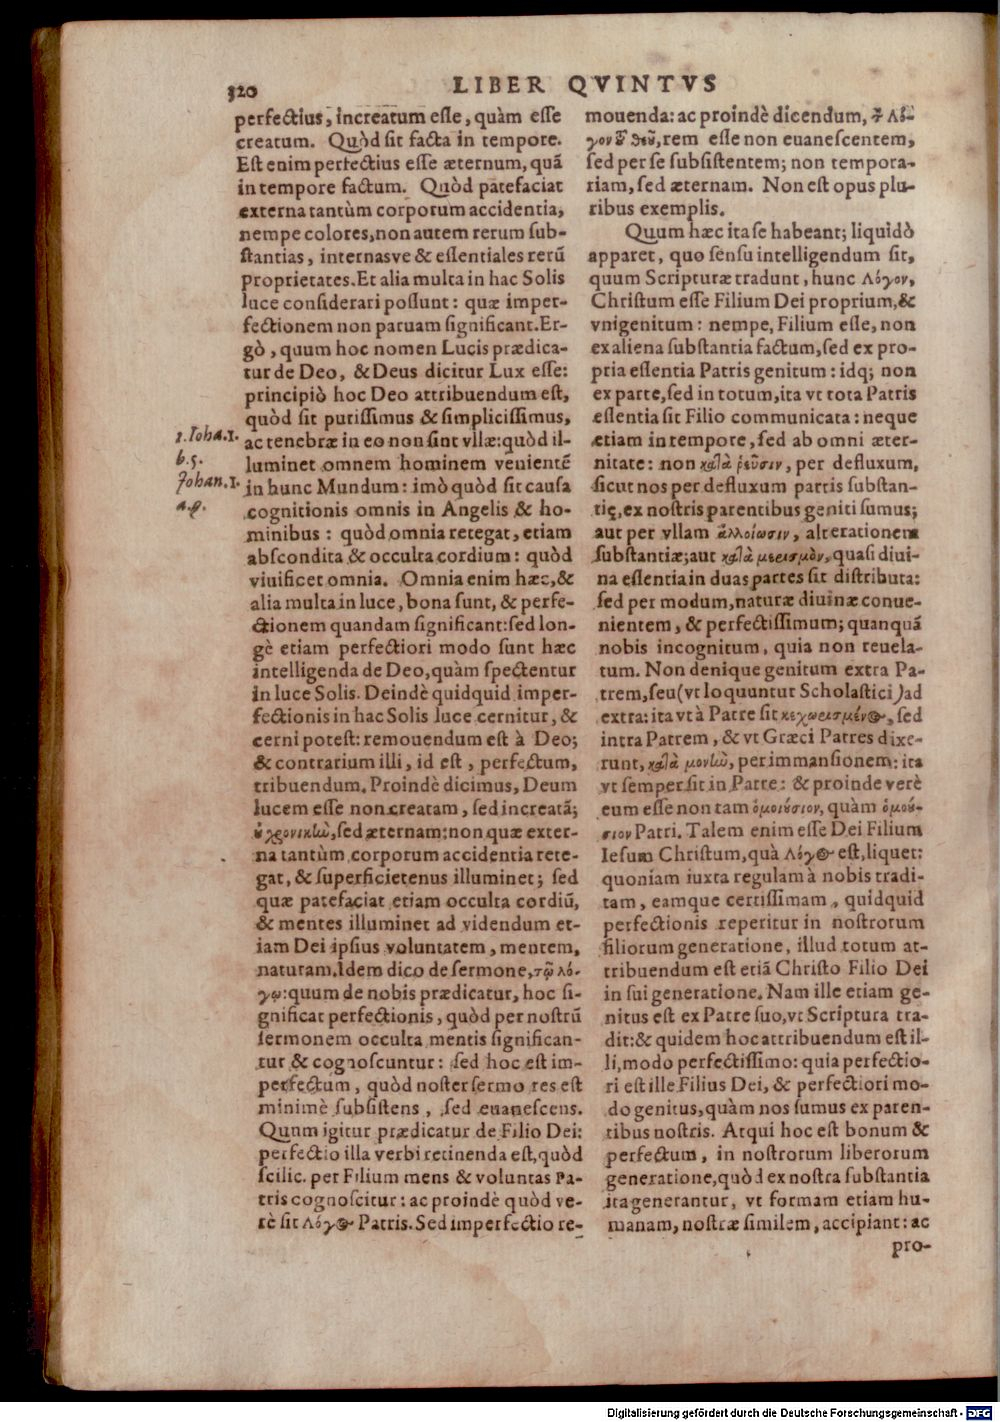 320
LIBER QVINTVS
perfectius, increatum esse, quàm esse
creatum. Quòd sit facta in tempore.
Est enim perfectius esse æternum, quã
in tempore factum. Quòd patefaciat
externa tantùm corporum accidentia,
nempe colores, non autem rerum sub-
stantias, internasve & essentiales rerũ
proprietates. Et alia multa in hac Solis
luce considerari possunt: quæ imper-
fectionem non paruam significant. Er-
gò, quum hoc nomen Lucis prædica-
tur de Deo, & Deus dicitur Lux esse:
principiò hoc Deo attribuendum est,
quòd sit purissimus & simplicissimus,
1. Ioha. 1.
ac tenebræ in eo non sint vllæ: quòd il-
b. 5.
luminet omnem hominem venientẽ
Johan. 1.
in hunc Mundum: imò quòd sit causa
a. 9.
cognitionis omnis in Angelis & ho-
minibus: quòd omnia retegat, etiam
abscondita & occulta cordium: quòd
viuificet omnia. Omnia enim hæc, &
alia multa in luce, bona sunt, & perfe-
ctionem quandam significant: sed lon-
gè etiam perfectiori modo sunt hæc
intelligenda de Deo, quàm spectentur
in luce Solis. Deindè quidquid imper-
fectionis in hac Solis luce cernitur, &
cerni potest: remouendum est à Deo;
& contrarium illi, id est, perfectum,
tribuendum. Proindè dicimus, Deum
lucem esse non creatam, sed increatã;
ὐ χρονικὼ, sed æternam: non quæ exter-
na tantùm corporum accidentia rete-
gat, & superficietenus illuminet; sed
quæ patefaciat etiam occulta cordiũ,
& mentes illuminet ad videndum et-
iam Dei ipsius voluntatem, mentem,
naturam. Idem dico de sermone, τῷ λό-
γῳ: quum de nobis prædicatur, hoc si-
gnificat perfectionis, quòd per nostrũ
sermonem occulta mentis significan-
tur & cognoscuntur: sed hoc est im-
perfectum, quòd noster sermo res est
minimè subsistens, sed euanescens.
Quum igitur prædicatur de Filio Dei:
perfectio illa verbi retinenda est, quòd
scilic. per Filium mens & voluntas Pa-
tris cognoscitur: ac proindè quòd ve-
rè sit Λόγος Patris. Sed imperfectio re-
mouenda: ac proindè dicendum, τ̃ Λό-
γον τ̃ Θεοῦ, rem esse non euanescentem,
sed per se subsistentem; non tempora-
riam, sed æternam. Non est opus plu-
ribus exemplis.
Quum hæc ita se habeant; liquidò
apparet, quo sensu intelligendum sit,
quum Scripturæ tradunt, hunc Λόγον,
Christum esse Filium Dei proprium, &
vnigenitum: nempe, Filium esse, non
ex aliena substantia factum, sed ex pro-
pria essentia Patris genitum: idq; non
ex parte, sed in totum, ita vt tota Patris
essentia sit Filio communicata: neque
etiam in tempore, sed ab omni æter-
nitate: non καλὰ ῥεῦσιν, per defluxum,
sicut nos per defluxum partis substan-
tię, ex nostris parentibus geniti sumus;
aut per vllam ἀλλοίωσιν, alterationem
substantiæ; aut καλὰ μερισμὸν, quasi diui-
na essentia in duas partes sit distributa:
sed per modum, naturæ diuinæ conue-
nientem, & perfectissimum; quanquã
nobis incognitum, quia non reuela-
tum. Non denique genitum extra Pa-
trem, seu (vt loquuntur Scholastici) ad
extra: ita vt à Patre sit κεχωρισμένος, sed
intra Patrem, & vt Græci Patres dixe-
runt, καλὰ μονὼ, per immansionem: ita
vt semper sit in Patre: & proinde verè
eum esse non tam ὁμοιούσιον, quàm ὁμοού-
σιον Patri. Talem enim esse Dei Filium
Iesum Christum, quà Λόγος est, liquet:
quoniam iuxta regulam à nobis tradi-
tam, eamque certissimam, quidquid
perfectionis reperitur in nostrorum
filiorum generatione, illud totum at-
tribuendum est etiã Christo Filio Dei
in sui generatione. Nam ille etiam ge-
nitus est ex Patre suo, vt Scriptura tra-
dit: & quidem hoc attribuendum est il-
li, modo perfectissimo: quia perfectio-
ri est ille Filius Dei, & perfectiori mo-
do genitus, quàm nos sumus ex paren-
tibus nostris. Atqui hoc est bonum &
perfectum, in nostrorum liberorum
generatione, quòd ex nostra substantia
ita generantur, vt formam etiam hu-
manam, nostræ similem, accipiant: ac
pro-
Digitalisierung gefördert durch die Deutsche Forschungsgemeinschaft - DFG